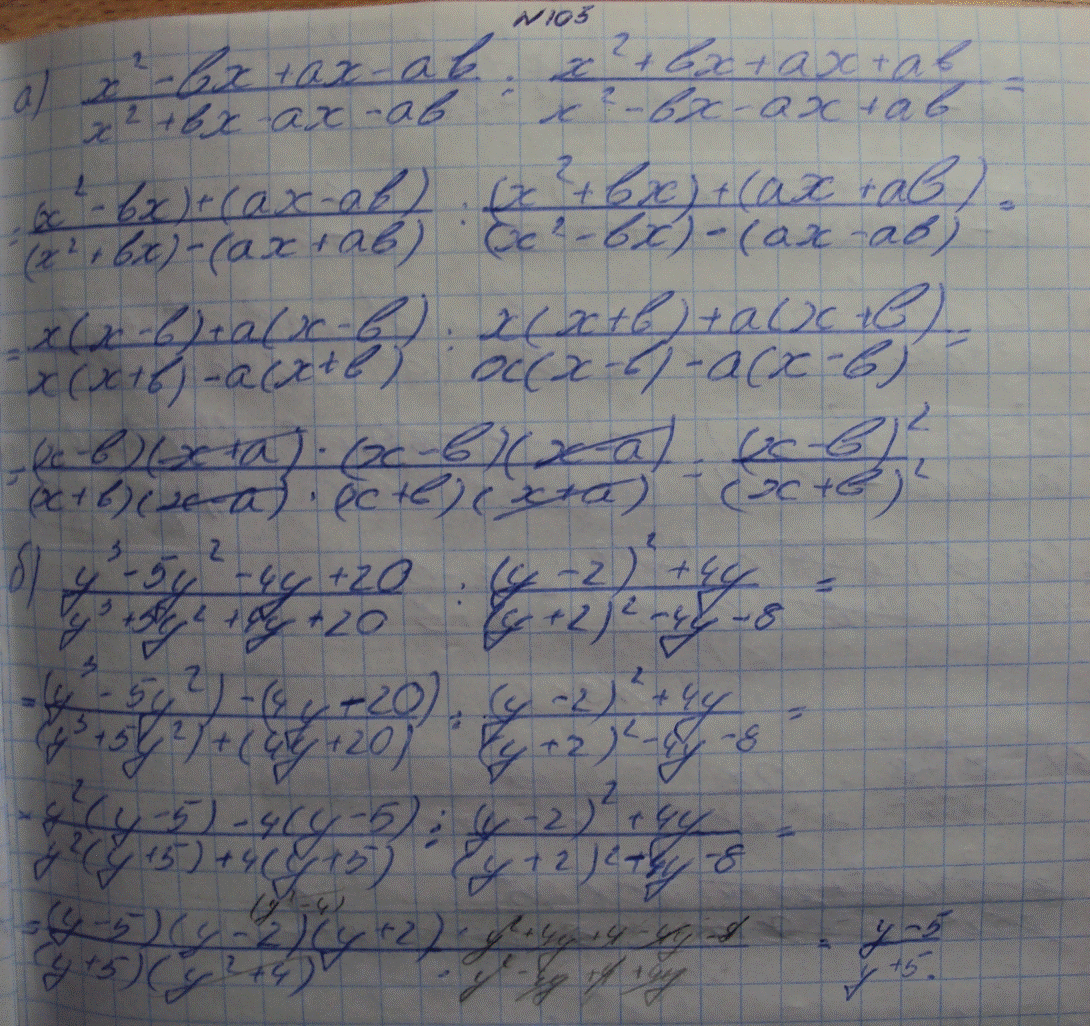 №103
а) (x² - bx + ax - ab)/(x² + bx - ax - ab) : (x² + bx + ax + ab)/(x² - bx - ax + ab) =
= ((x² - bx) + (ax - ab))/((x² + bx) - (ax + ab)) : ((x² + bx) + (ax + ab))/((x² - bx) - (ax - ab)) =
= (x(x - b) + a(x - b))/(x(x + b) - a(x + b)) : (x(x + b) + a(x + b))/(x(x - b) - a(x - b)) =
= ((x - b)(x + a) · (x - b)(x - a))/((x + b)(x - a) · (x + b)(x + a)) = (x - b)²/(x + b)²
б) (y³ - 5y² - 4y + 20)/(y³ + 5y² + 4y + 20) : ((y - 2)² + 4y)/((y + 2)² - 4y - 8) =
= ((y³ - 5y²) - (4y - 20))/((y³ + 5y²) + (4y + 20)) : ((y - 2)² + 4y)/((y + 2)² - 4y - 8) =
= (y²(y - 5) - 4(y - 5))/(y²(y + 5) + 4(y + 5)) : ((y - 2)² + 4y)/((y + 2)² - 4y - 8) =
(y² - 4)
= ((y - 5)(y - 2)(y + 2) · y² + 4y + 4 - 4y - 8)/((y + 5)(y² + 4) · y² - 4y + 4 + 4y) = (y - 5)/(y + 5).